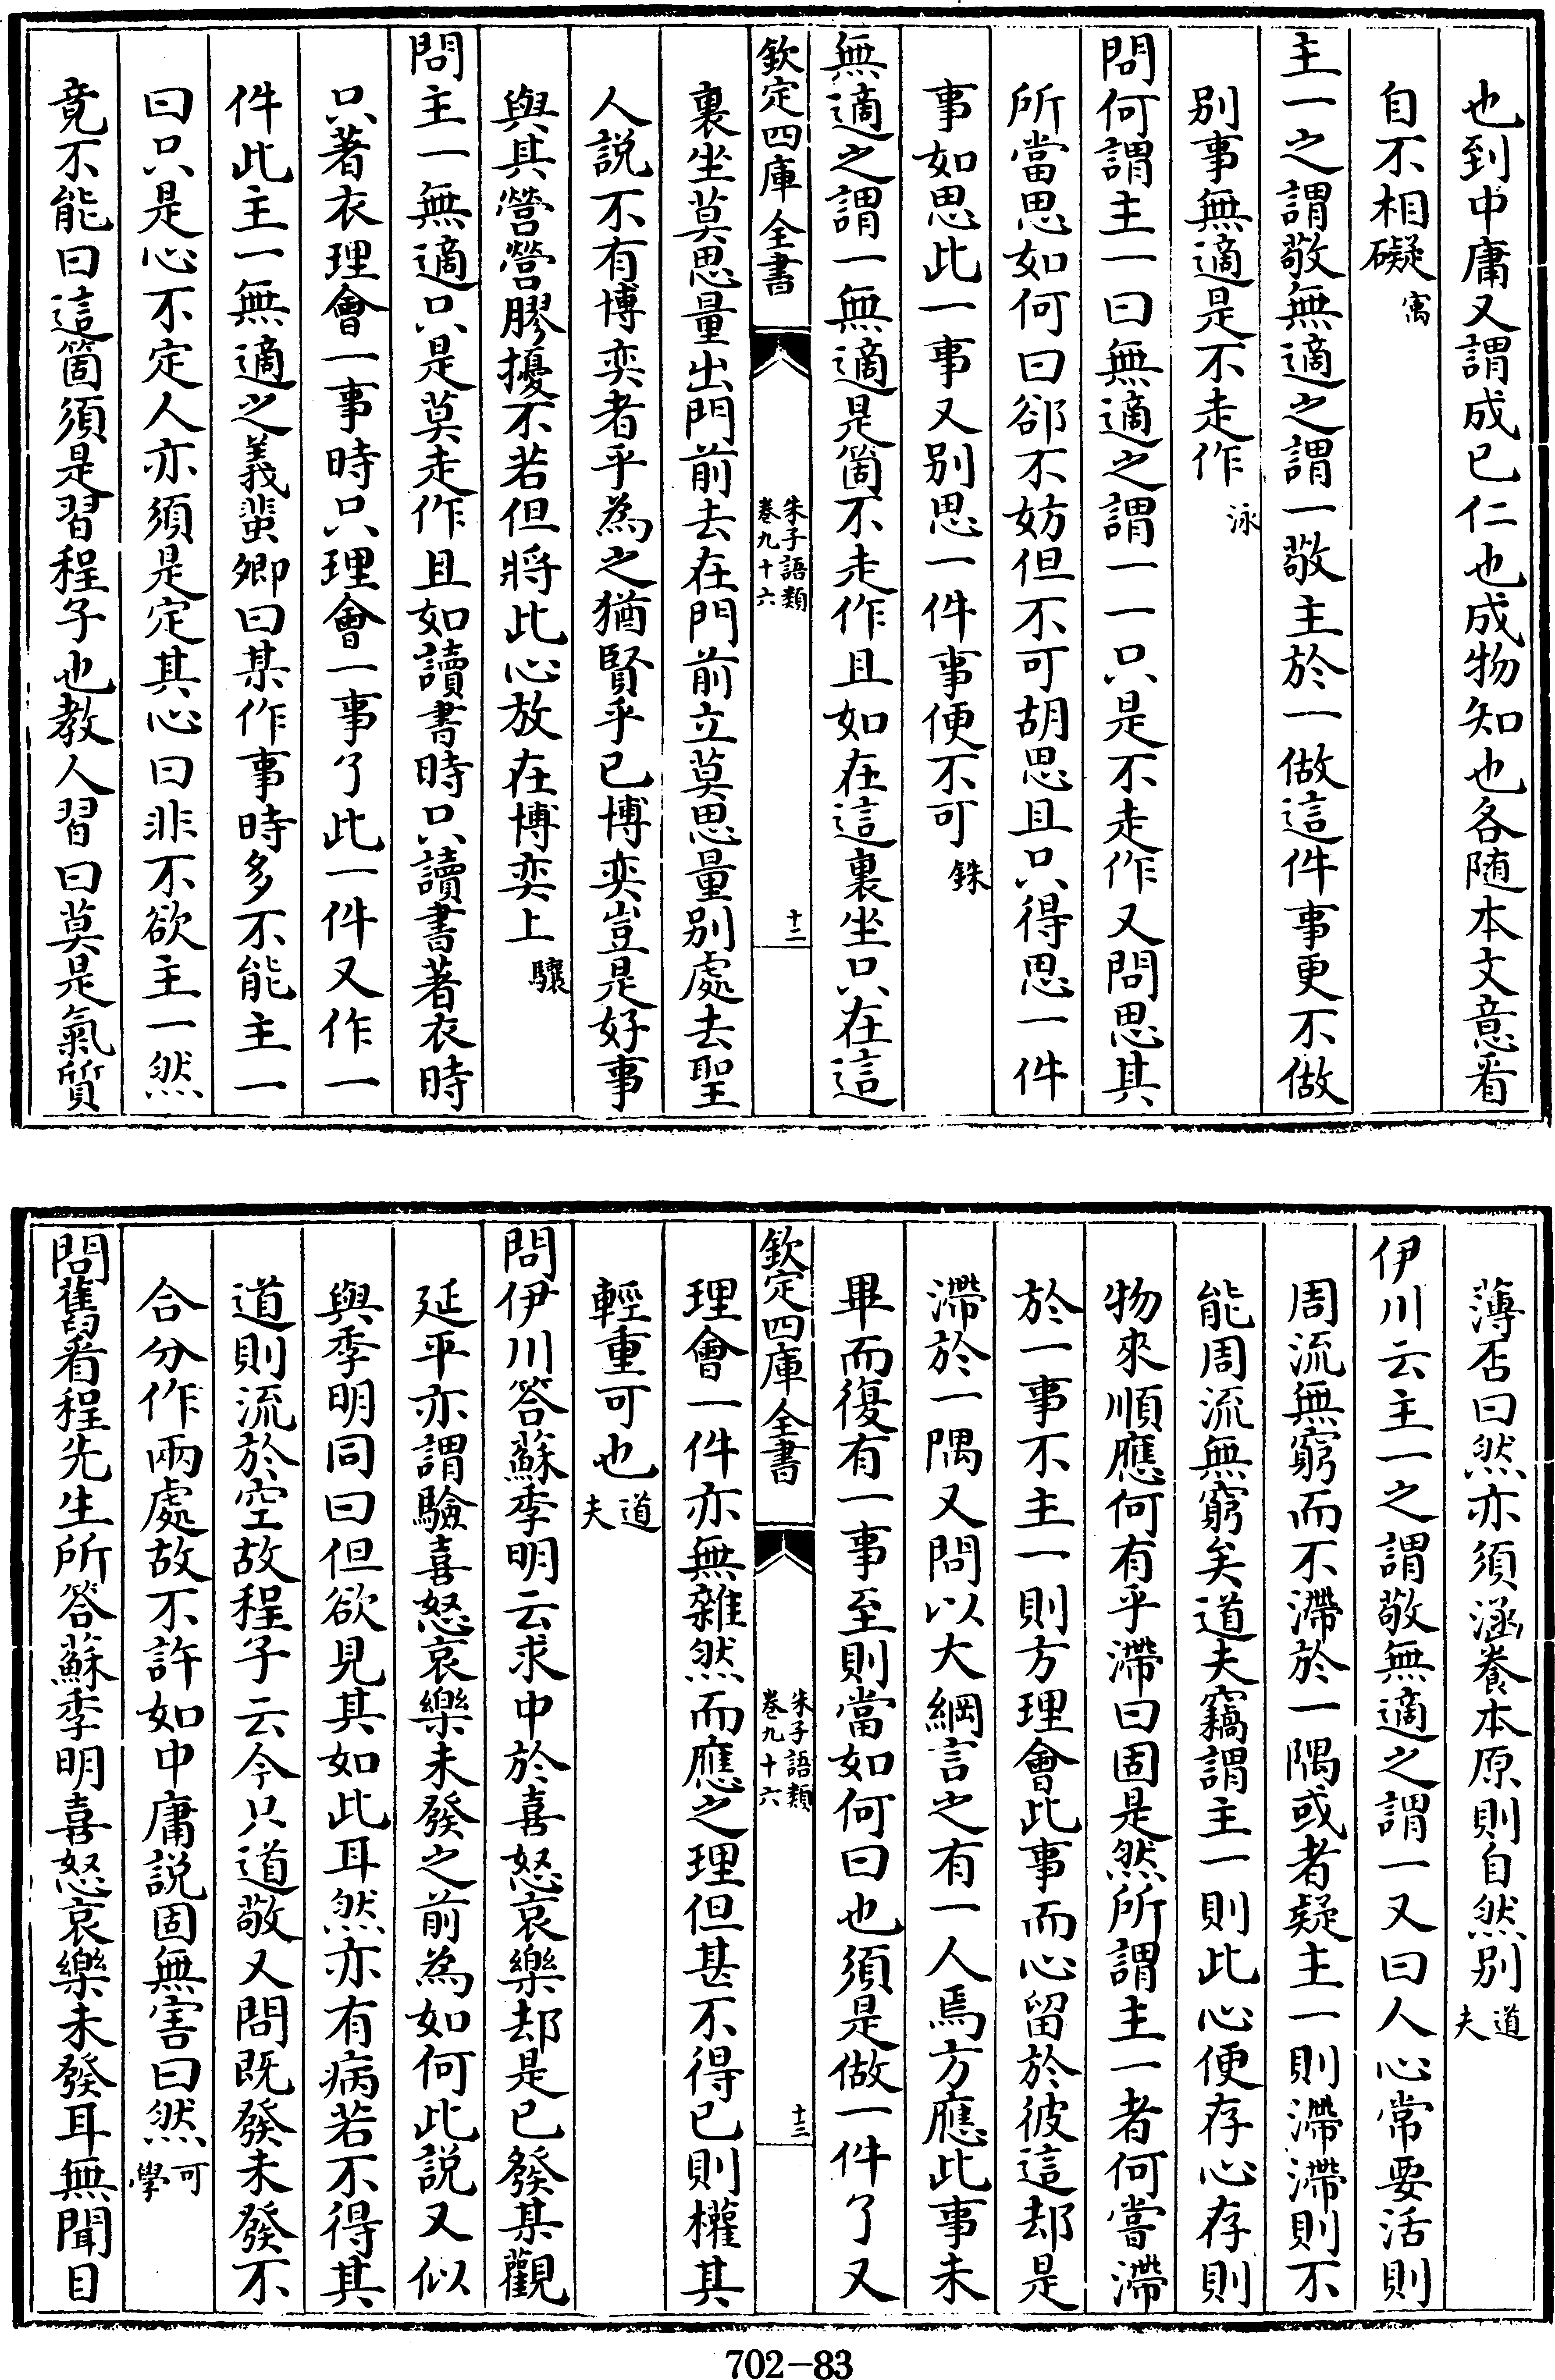 也到中庸又謂成已仁也成物知也各随本文意看
自不相礙寓
主一之謂敬無適之謂一敬主於一做這件事更不做
别事無適是不走作泳
問何謂主一曰無適之謂一一只是不走作又問思其
所當思如何曰郤不妨但不可胡思且只得思一件
事如思此一事又别思一件事便不可銖
無適之謂一無適是箇不走作且如在這裏坐只在這
欽定四庫全書
朱子語類
卷九十六
十二
裏坐莫思量出門前去在門前立莫思量别處去聖
人説不有博奕者乎為之猶賢乎已博奕豈是好事
與其營營膠擾不若但將此心放在博奕上驤
問主一無適只是莫走作且如讀書時只讀書著衣時
只著衣理會一事時只理會一事了此一件又作一
件此主一無適之義蜚卿曰某作事時多不能主一
曰只是心不定人亦須是定其心曰非不欲主一然
竟不能曰這箇須是習程子也教人習曰莫是氣質
薄否曰然亦須涵養本原則自然别道夫
伊川云主一之謂敬無適之謂一又曰人心常要活則
周流無窮而不滯於一隅或者疑主一則滯滯則不
能周流無窮矣道夫竊謂主一則此心便存心存則
物來順應何有乎滯曰固是然所謂主一者何嘗滯
於一事不主一則方理會此事而心留於彼這却是
滯於一隅又問以大綱言之有一人焉方應此事未
畢而復有一事至則當如何曰也須是做一件了又
欽定四庫全書
朱子語類
卷九十六
十三
理會一件亦無雜然而應之理但甚不得已則權其
輕重可也道夫
問伊川答蘇季明云求中於喜怒哀樂却是已發某觀
延平亦謂驗喜怒哀樂未發之前為如何此説又似
與季明同曰但欲見其如此耳然亦有病若不得其
道則流於空故程子云今只道敬又問既發未發不
合分作兩處故不許如中庸説固無害曰然可學
問舊看程先生所答蘇季明喜怒哀樂未發耳無聞目
702-83